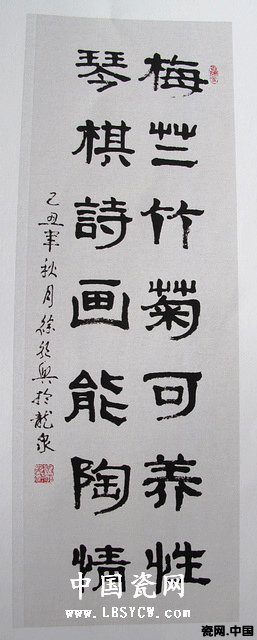 梅兰竹菊可养性
琴棋詩画能陶情
乙丑年秋月徐朝興於龍泉
中国瓷网
www.LBSYCW.com
瓷网.中国